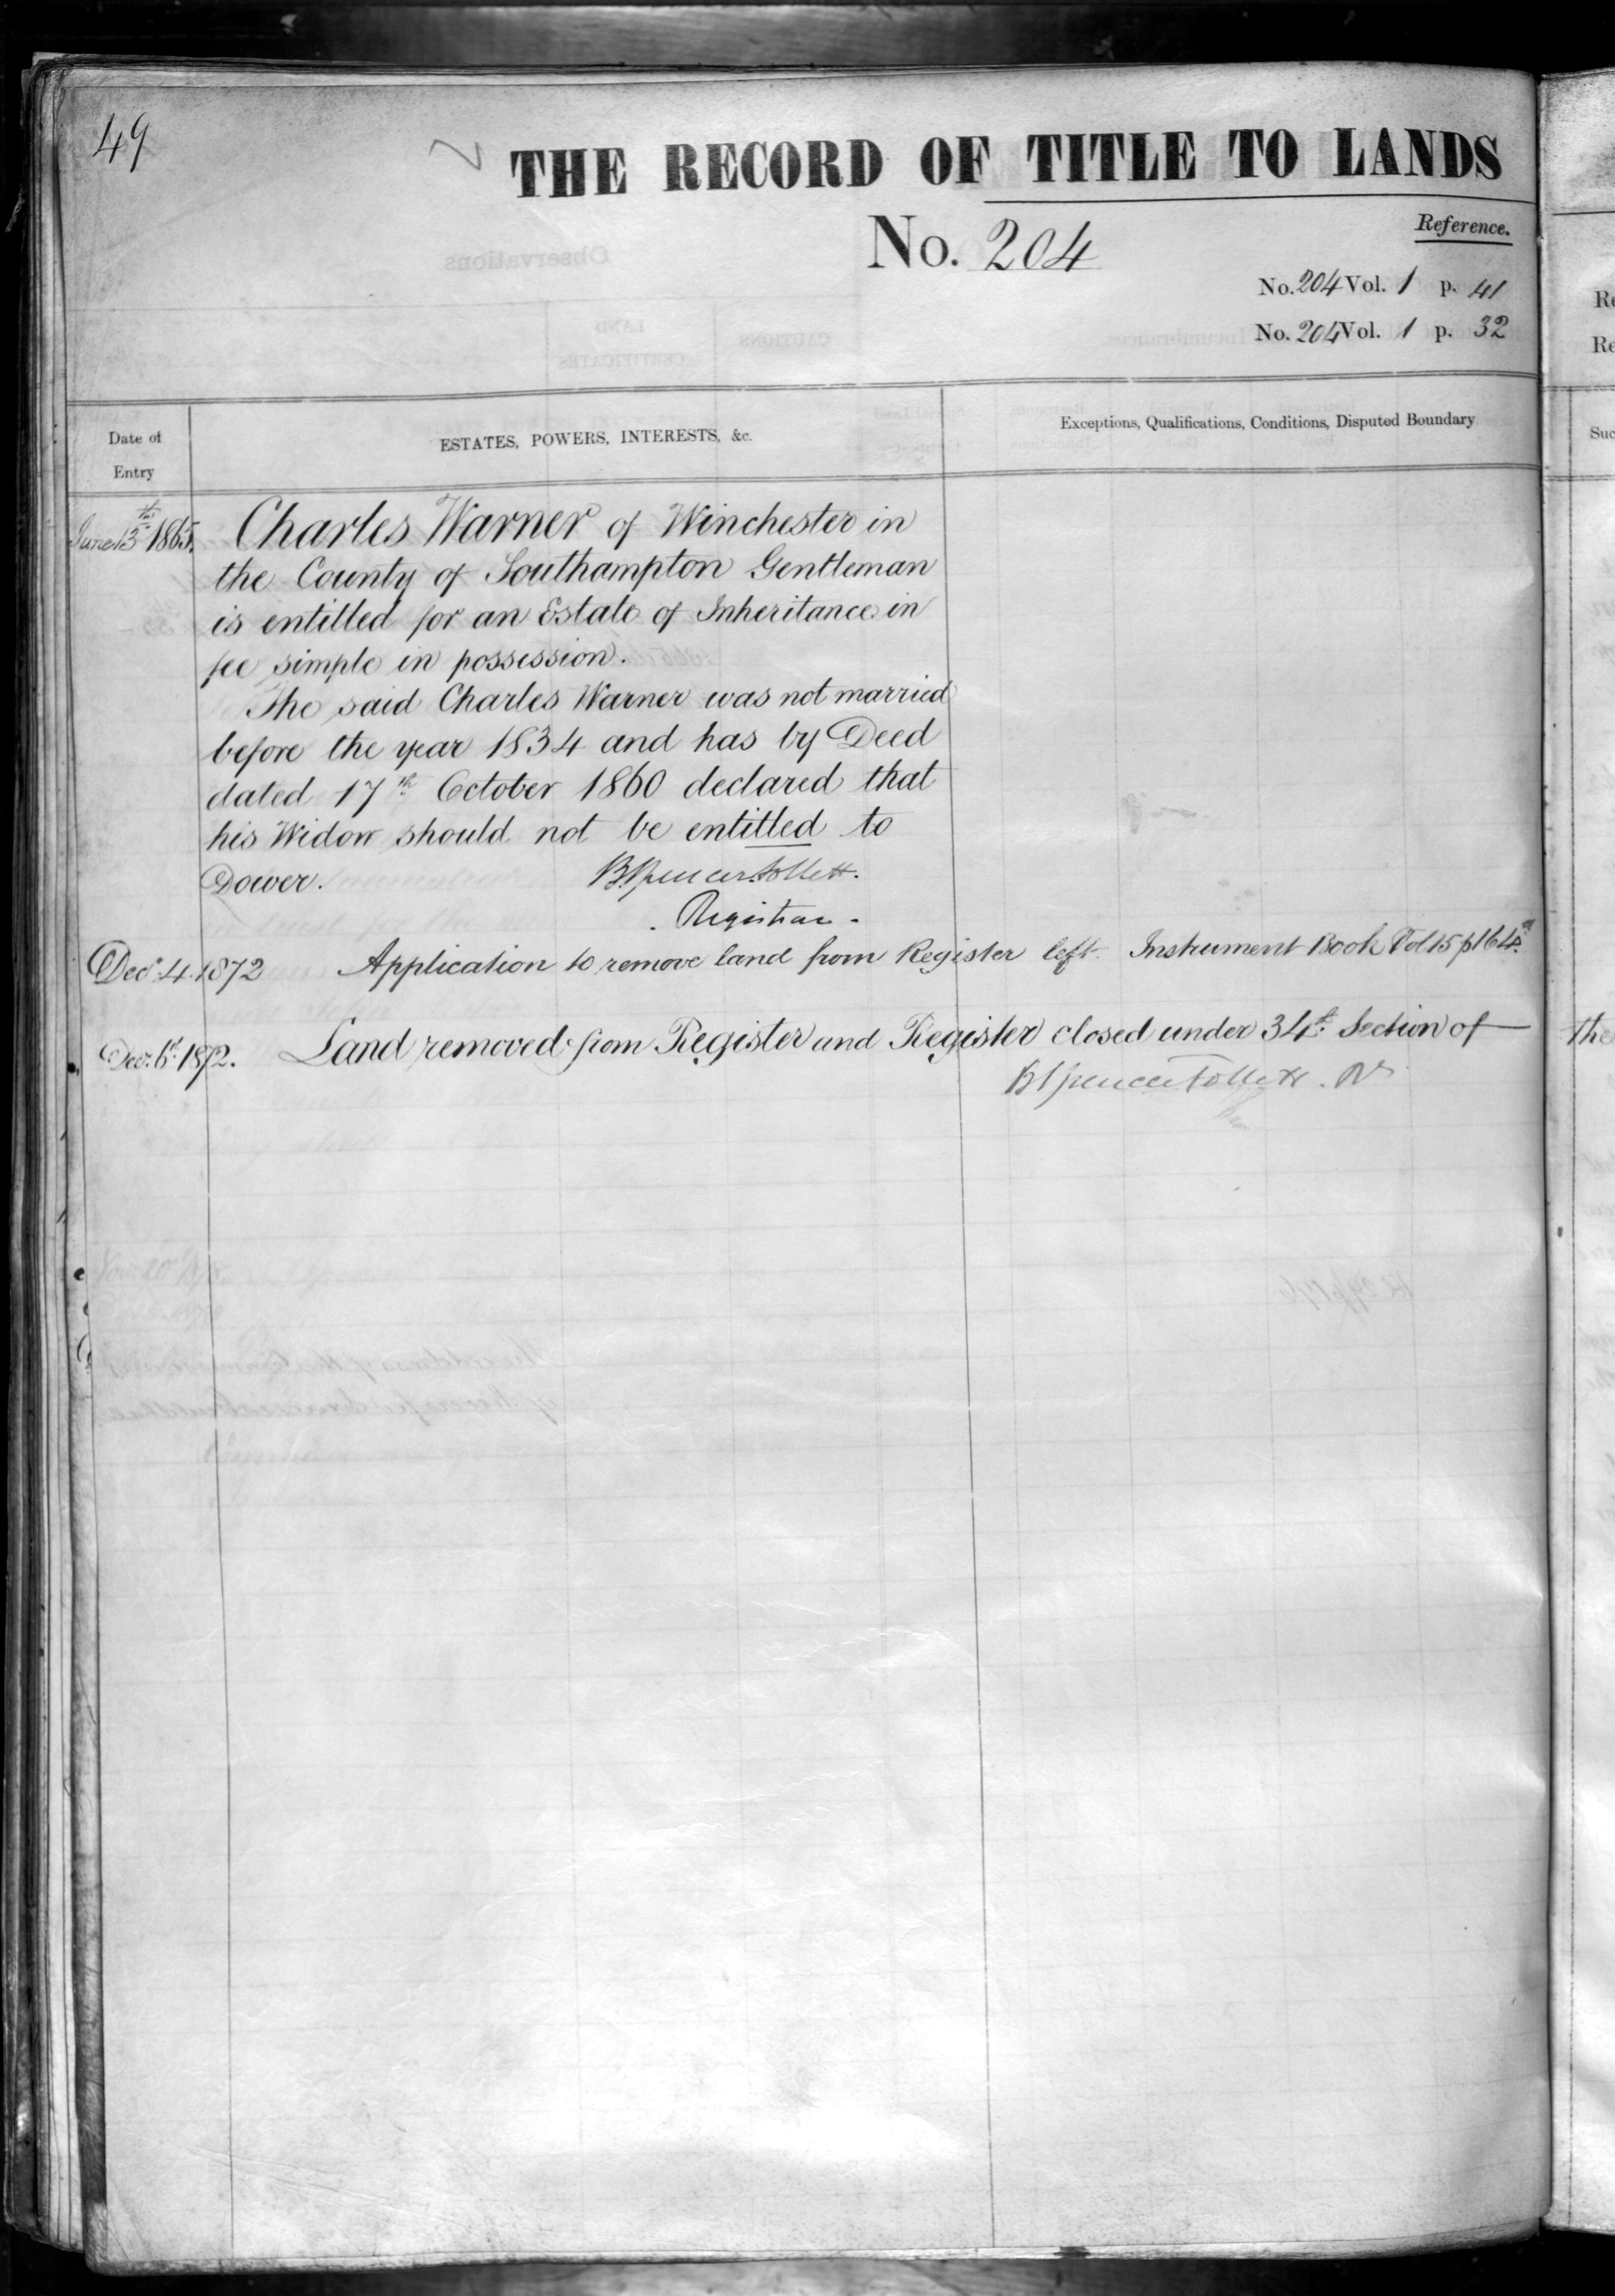 49
THE RECORD OF TITLE TO LANDS
No. 204
Reference.
No. 204 Vol. 1 p. 41
No. 204 Vol. 1 p. 32
Date of Entry
ESTATES, POWERS, INTERESTS, &c.
Exceptions, Qualifications, Conditions, Disputed Boundary
June 13th 1865.
Charles Warner of Winchester in
the County of Southampton Gentleman
is entitled for an Estate of Inheritance in
fee simple in possession.
The said Charles Warner was not married
before the year 1834 and has by Deed
dated 17th October 1860 declared that
his Widow should not be entitled to
Dower.
B. Spencer Follett.
Registrar.
Decr. 4. 1872 Application to remove land from Register left. Instrument Book Vol 15 p 164
Decr. 6th 1872. Land removed from Register and Register closed under 34th Section of
B Spencer Follett. Rr
The